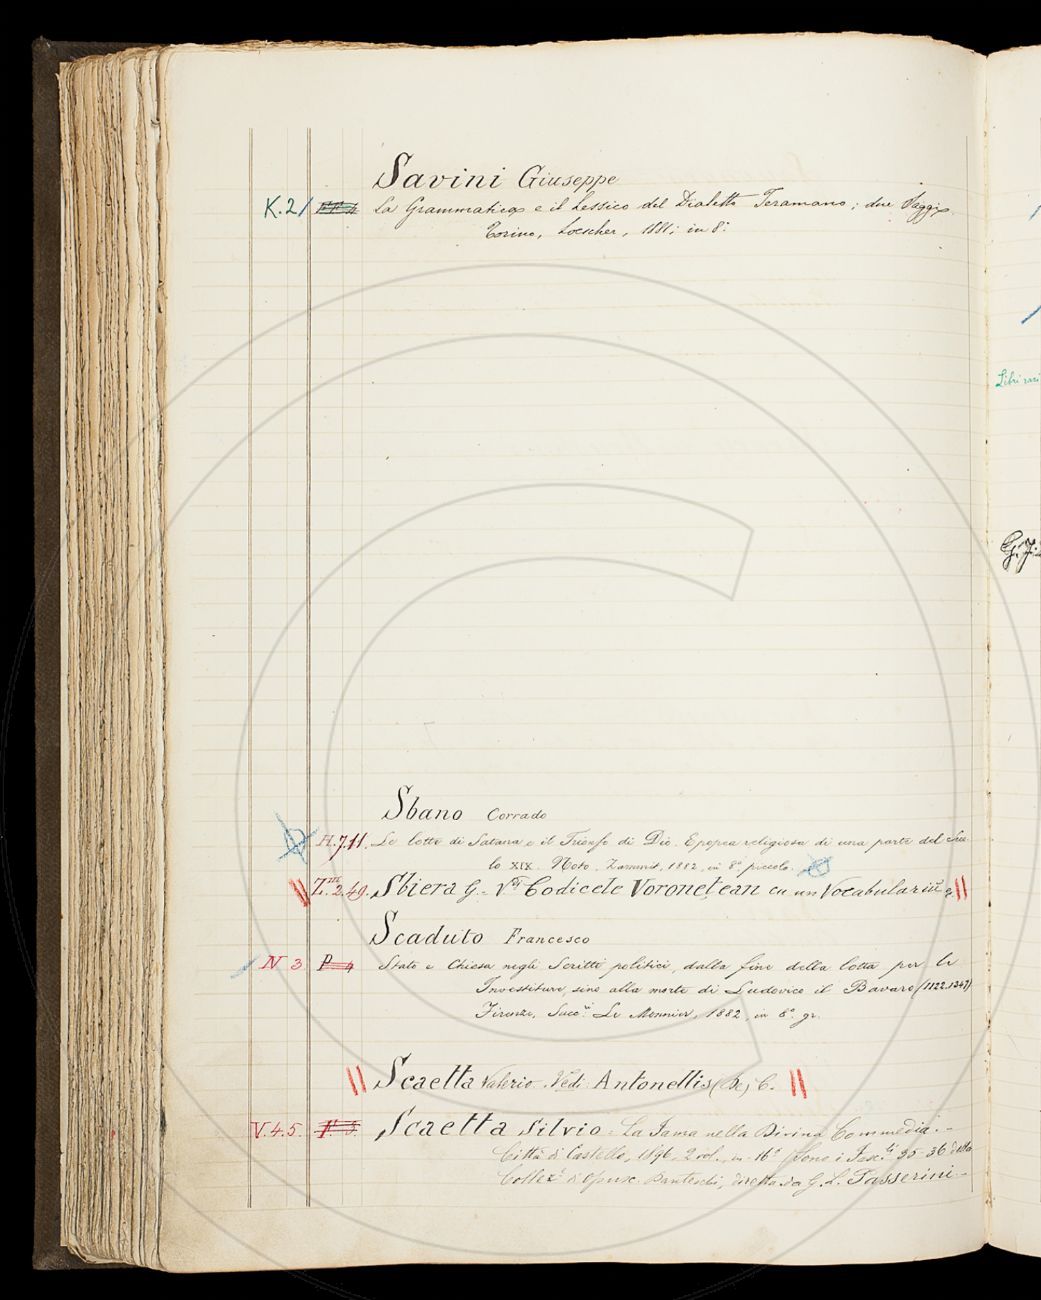 Savini Giuseppe
K.21 La Grammatica e il Lessico del Dialetto Teramano; due Saggi.
Torino, Loescher, 1881; in 8º
Libri rari
Sbano Corrado
H.7.11. Le lotte di Satana e il Trionfo di Dio. Epopea religiosa di una parte del Seco
lo XIX. Noto, Zammit, 1882, in 8º piccolo.
Z.III.2.49. Sbiera G. - Codicele Voronețean cu un Vocabulariŭ
Scaduto Francesco
N 3 P 4 Stato e Chiesa negli Scritti politici, dalla fine della lotta per le
Investiture, sino alla morte di Ludovico il Bavaro (1122-1347)
Firenze, Succ.ri Le Monnier, 1882, in 8º gr.
Scaetta Valerio. Vedi Antonellis (De) C.
V.4.5. Scaetta Silvio - La Fama nella Divina Commedia -
Città di Castello, 1896, 2 vol., in-16º (Sono i Fasc.li 35-36 della
Collez.e di Opusc. Danteschi, diretta da G. L. Passerini -